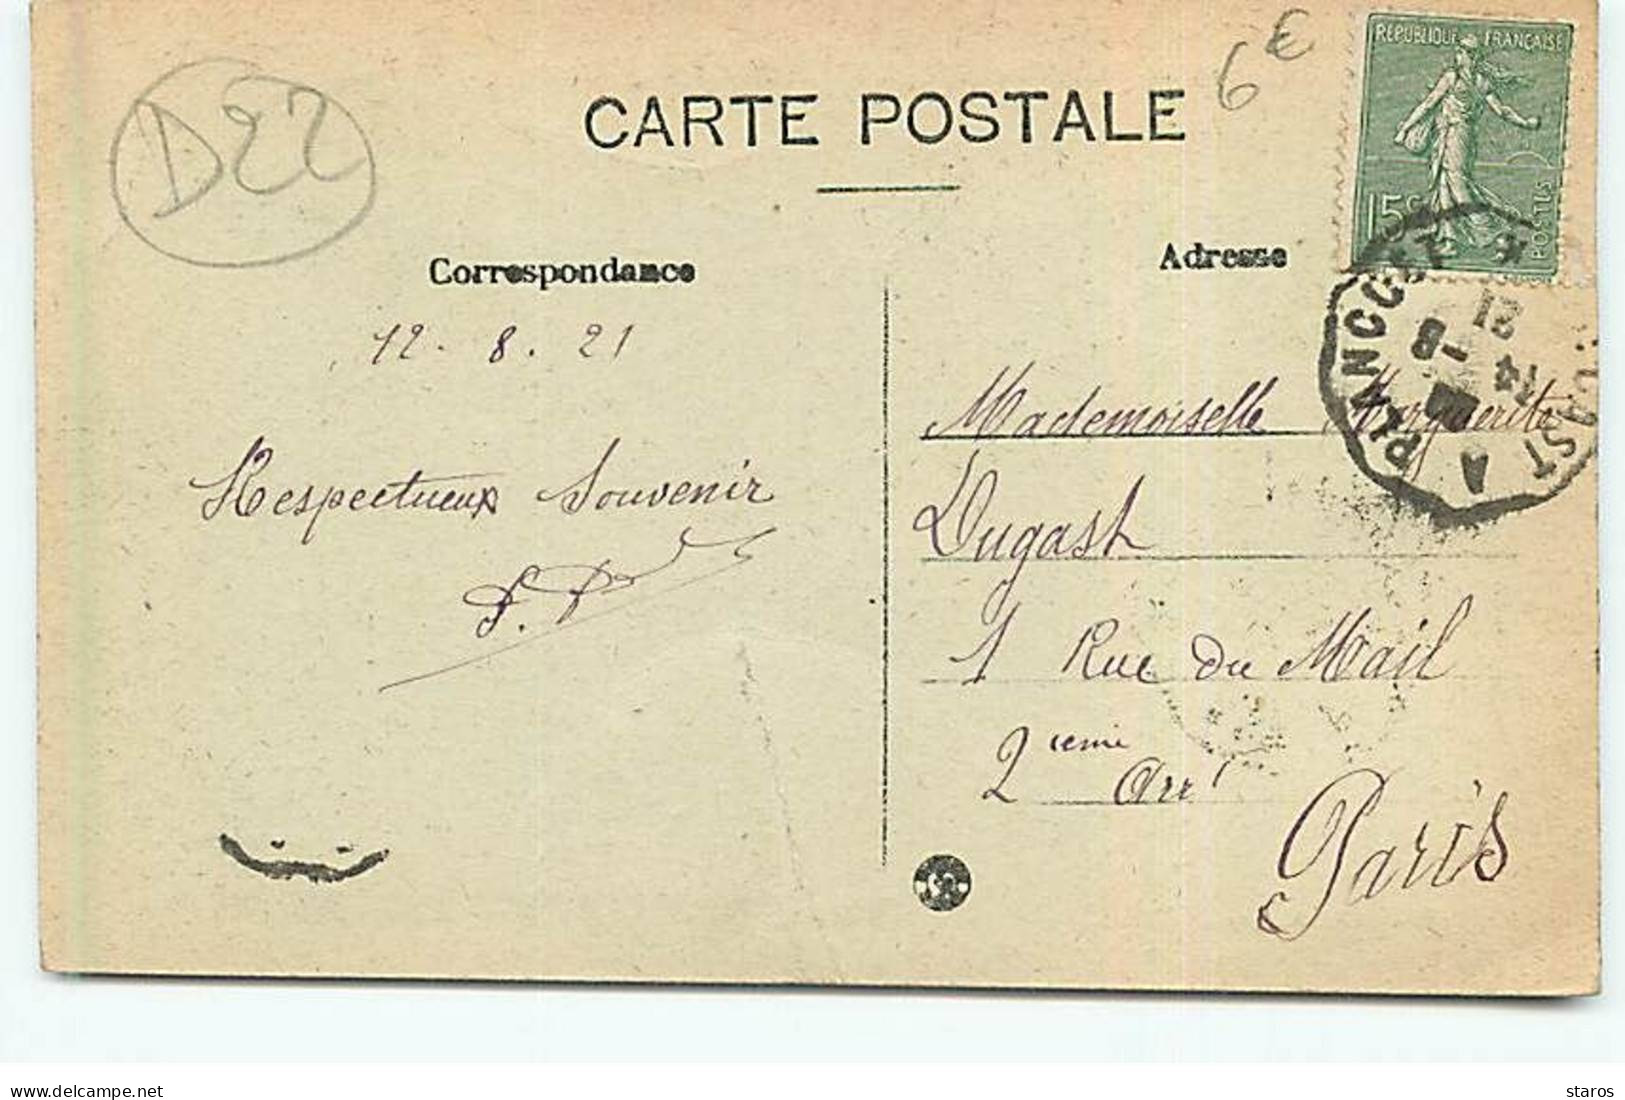 D22
6€
CARTE POSTALE
REPUBLIQUE FRANÇAISE
15c
POSTES
Correspondance
Adresse
PLANCOET
ST CAST A
14 -8
21
12. 8. 21
Respectueux Souvenir
Mademoiselle Marguerite
Dugast
1 Rue du Mail
2ieme Arrt
Paris
Delcampe.net
staros